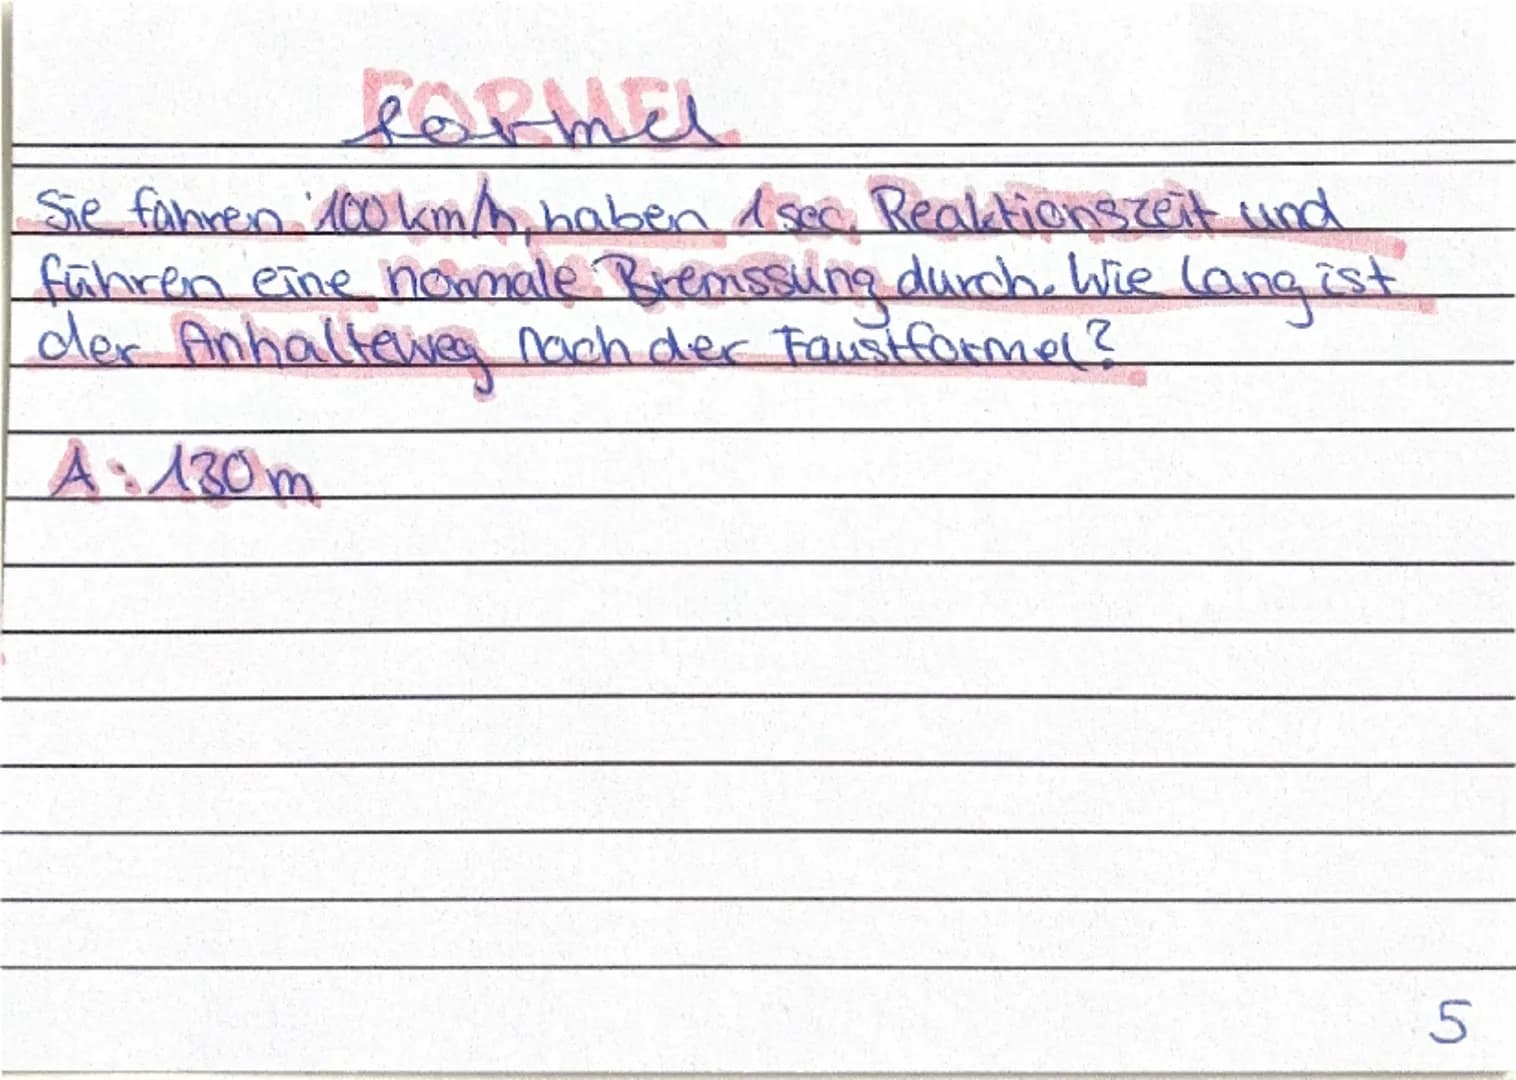 FORMEL
formel
Sie fahren 100 km/h, haben 1 sec. Reaktionszeit und
führen eine normale Bremssung durch. Wie lang ist
der Anhalteweg nach der Faustformel?
A: 130 m
5